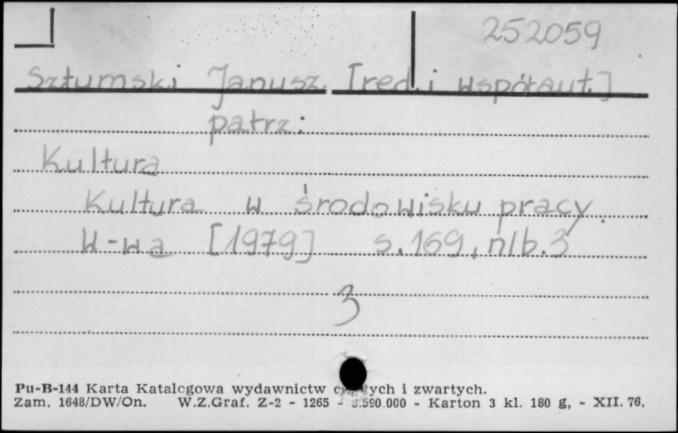 252059
Sztumski Janusz [red. i współaut.]
patrz:
Kultura
Kultura w środowisku pracy.
W-wa [1979] s. 169, nlb. 3
3
Pu-B-144 Karta Katalogowa wydawnictw ciągłych i zwartych.
Zam. 1648/DW/On. W.Z.Graf. Z-2 - 1265 - 3.590.000 - Karton 3 kl. 180 g, - XII. 76.